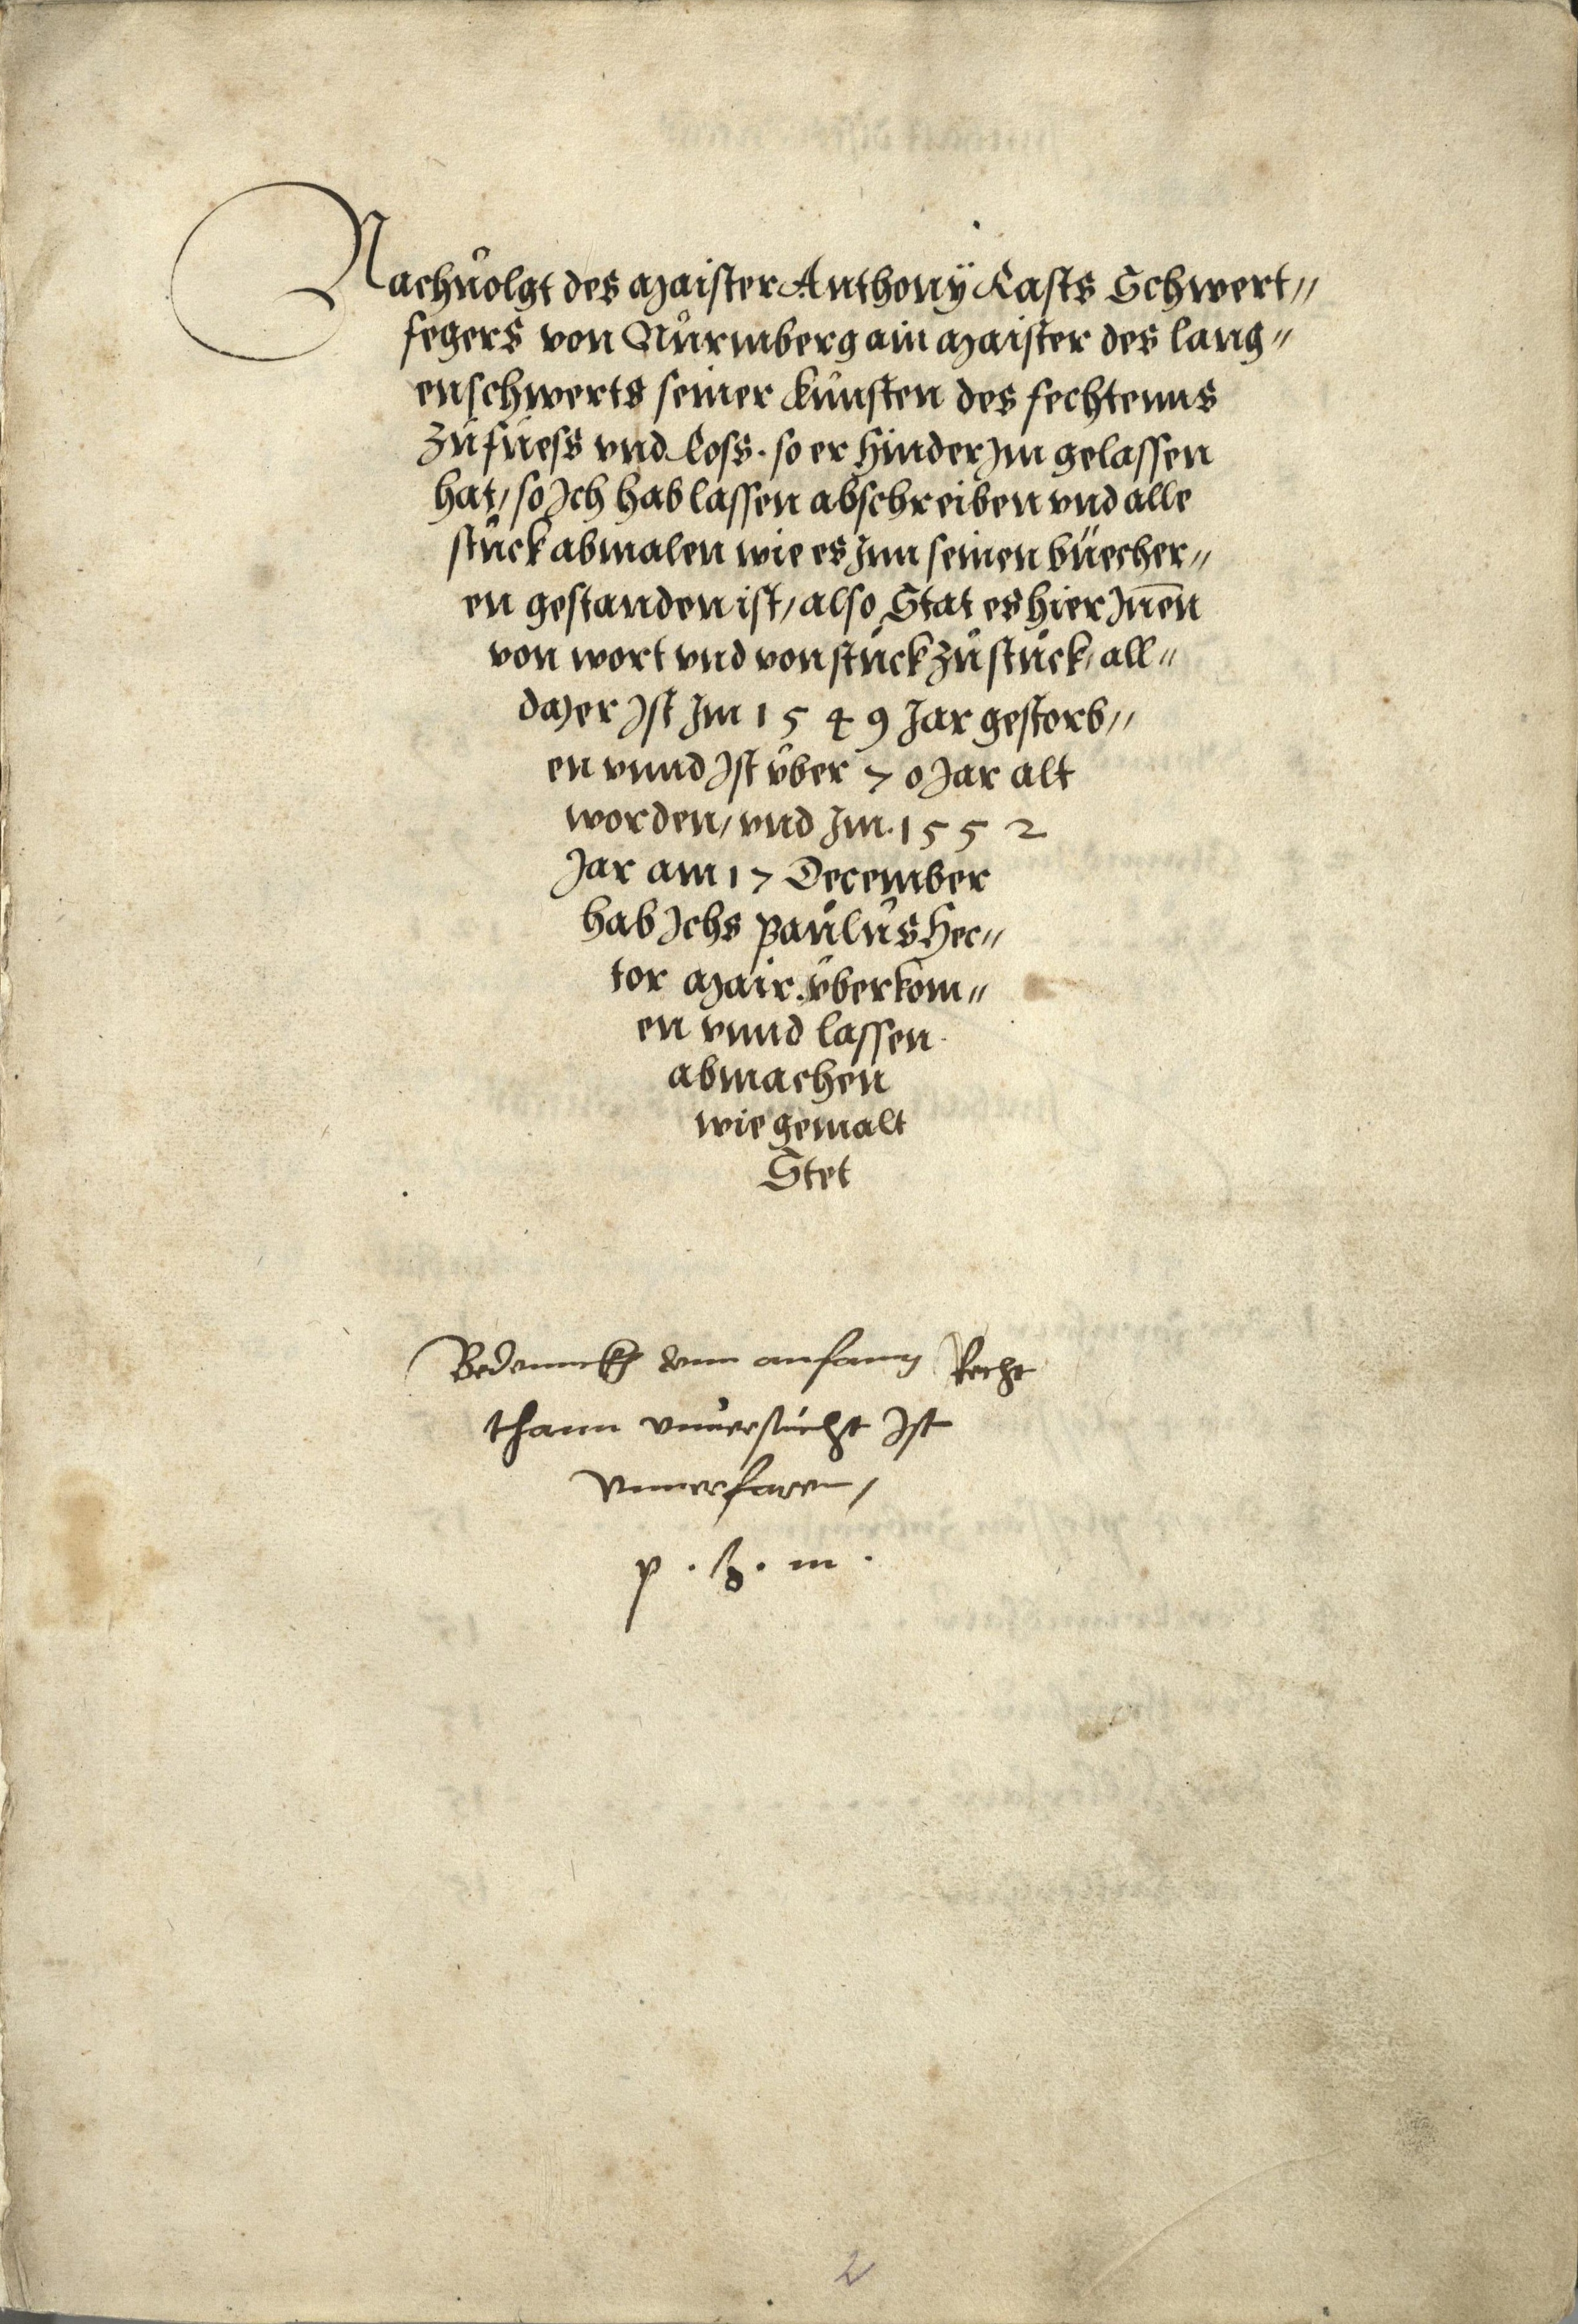 Nachuolgt des Maister Anthonÿ Rasts Schwert〃
fegers von Nůrmberg ain Maister des lang〃
enschwerts seiner kůnsten des fechtenns
zůfůess vnd Ross. so er hinder Im gelassen
hat/ so Ich hab lassen abschreiben vnd alle
stůck abmalen wie es Inn seinen büecher〃
en gestanden ist/ also Stat es hier Inn̄en
von wort vnd von stůck zůstůck/ all〃
da) er Ist Im 1549 Jar gestorb〃
en vnnd Ist v̈ber 70 Jar alt
worden/ vnd Im. 1552
Jar am 17 December
hab Ichs Paůlůs Hec〃
tor Mair v̈berkom〃
en vnnd lassen
abmachen
wie gemalt
Stet
Bedennckh anfanng Recht
thann vnuersůcht Ist
vnnerfaren/
p. h. m.
2